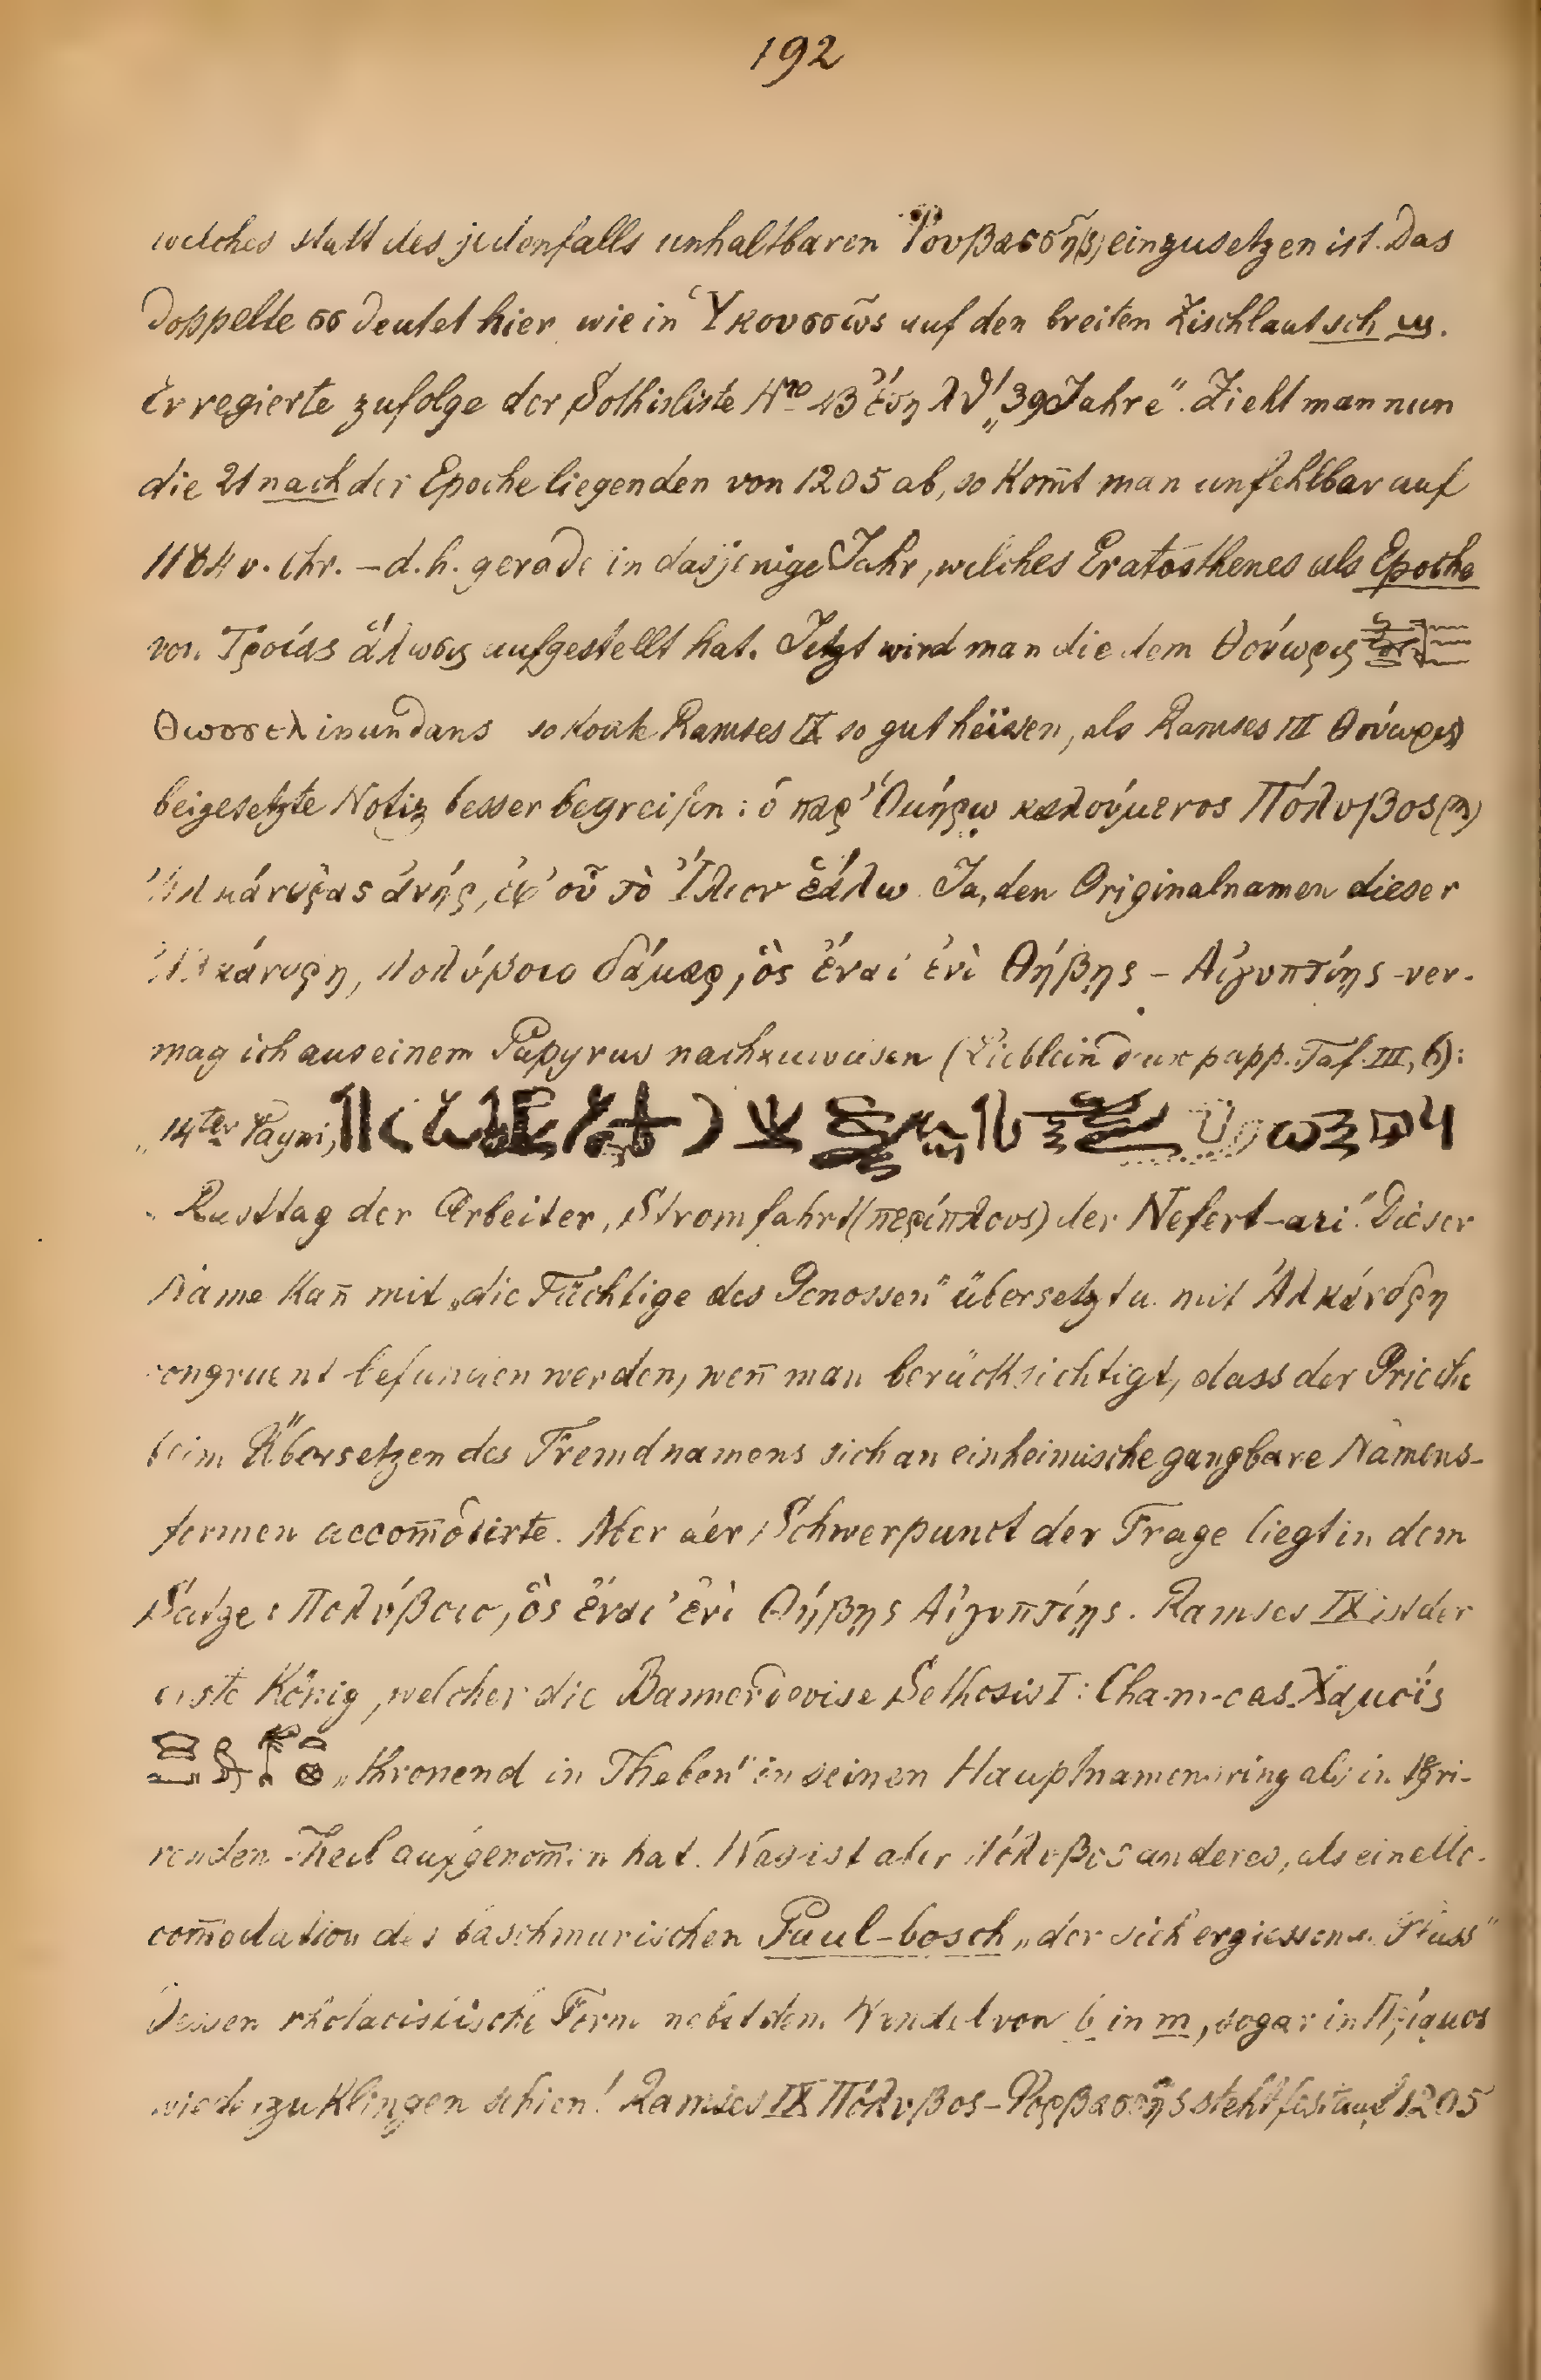 192
welches statt des jedenfalls unhaltbaren einzusetzen ist. Das
doppelte σσ deutet hier wie in Ὑκουσσῶς auf den breiten Zischlaut sch ϣ.
Er regierte zufolge der Sothisliste Nro 43 ἔτη λθ′ „39 Jahre“. Zieht man nun
die 21 nach der Epoche liegenden von 1205 ab, so kom̄t man unfehlbar auf
1184 v. Chr. – d. h. gerade in dasjenige Jahr, welches Eratosthenes als Epoche
von Τροίας ἅλωσις aufgestellt hat. Jetzt wird man die dem Θούωρις
inundans so konte Ramses IX so gut heissen, als Ramses III Θούωρις
beigesetzte Notiz besser begreifen: ὁ παρ’ Ὁμήρῳ καλούμενος Πόλυβος (η)
Ἀλκάνδρας ἀνήρ, ἐφ’ οὗ τὸ Ἴλιον ἑάλω. Ja, den Originalnamen dieser
Ἀλκάνδρη, Πολύβοιο δάμαρ, ὃς ἔναι’ ἐνὶ Θήβῃς – Αἰγυπτίῃς – ver-
mag ich aus einem Papyrus nachzuweisen (Lieblein deux papp. Taf. III, 6):
„14ter Payni,
Rasttag der Arbeiter, Stromfahrt (περίπλους) der Nefert-ari“. Dieser
Name kan̄ mit „die Tüchtige des Genossen“ übersetzt u. mit Ἀλκάνδρη
congruent befunden werden, wen̄ man berücksichtigt, dass der Grieche
beim Übersetzen des Fremdnamens sich an einheimische gangbare Namens-
formen accom̄odirte. Aber der Schwerpunct der Frage liegt in dem
Satze: Πολύβοιο, ὃς ἔναι’ ἐνὶ Θήβῃς Αἰγυπτίῃς. Ramses IX ist der
erste König, welcher die Bannerdevise Sethosis I: Cha-m-eas Χαμοΐς
„Thronend in Theben“ in seinen Hauptnamensring als integri-
renden Theil aufgenom̄en hat. Was ist aber Πόλυβος anderes, als eine Ac-
com̄odation des baschmurischen Paul-bosch „der sich ergiessende Fluss“
dessen rhotacistische Form nebst dem Wandel von b in m, sogar in Πρίαμος
wiederzuklingen schien! Ramses IX Πόλυβος – steht fest auf 1205